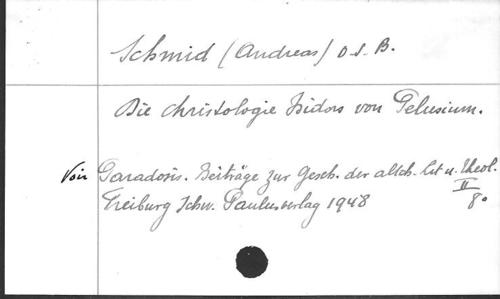 Schmid (Andreas) O.S.B.
Die Christologie Isidors von Pelusium.
Voir Paradosis. Beiträge zur Gesch. der altch. Lit u. Theol.
II
Freiburg Schw. Paulusverlag 1948 8°